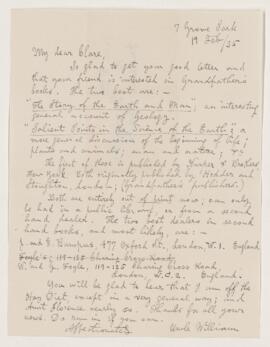 7 Grove Park
19 Feb/35
My dear Clare,
So glad to get your good letter and
that your friend is interested in Grandfather's
books. The two best are: -
"The Story of the Earth and Man", an interesting
general account of Geology.
"Salient Points in the Science of the Earth" a
more general discussion of the beginning of life;
plants and animals; man and nature, etc.
The first of these is published by Harper & Brothers
New York. Both originally published by "Hodder and
Stoughton, London; (Grandfather's publishers.)
Both are entirely out of print now; can only
be had in a public library, or from a second
hand dealer. The two best dealers in second
hand books, and most likely, are: -
J. and E. Bumpus, 477 Oxford St. London, W.1. England
Foyle's; 119-125 Charing Cross Road,
W. and G. Foyle, 119-125 Charing Cross Road,
London, W.C.2. England.
You will be glad to hear that I am off the
Hay Diet except in a very general way; and
Aunt Florence nearly so. Thanks for all your
news. Do run in if you can.
Affectionately Uncle William